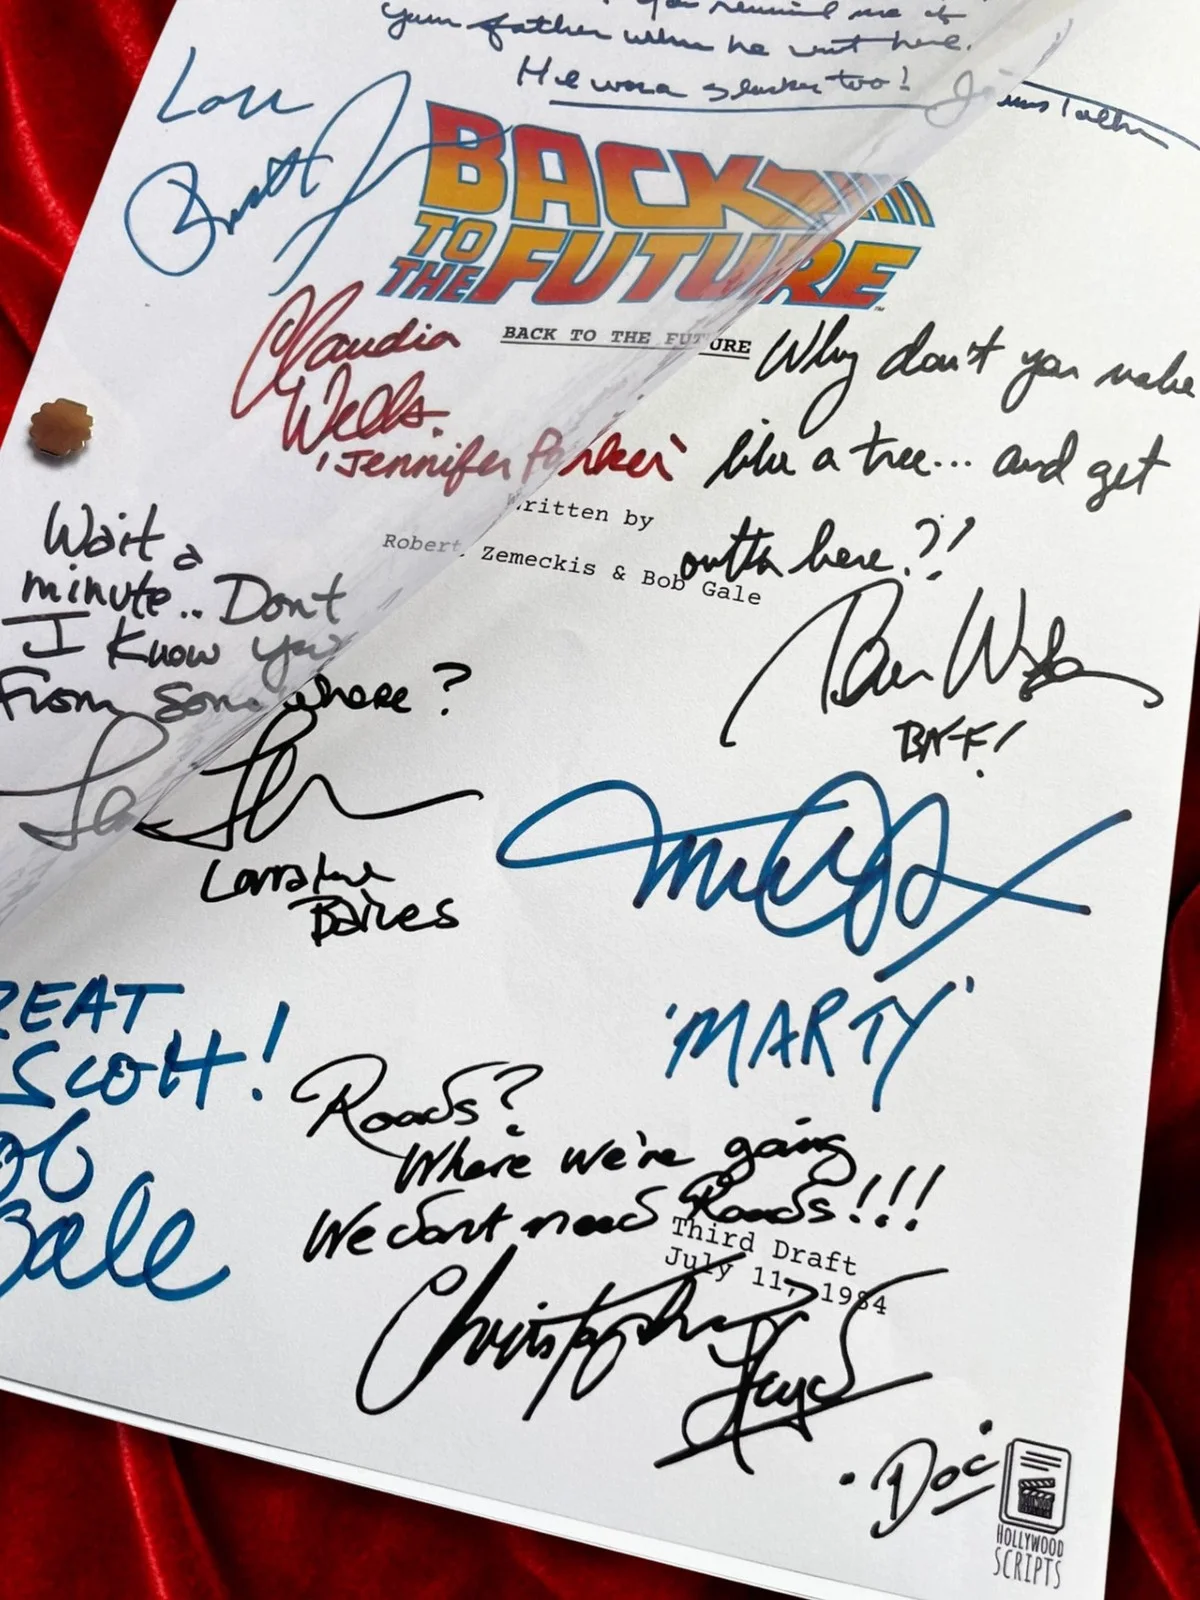 You remind me of
your father when he went here.
He was a slacker too!
BACK
TO THE FUTURE
™
BACK TO THE FUTURE
Claudia
Wells
'Jennifer Parker'
Why don't you make
like a tree... and get
outta here?!
Written by
Robert Zemeckis & Bob Gale
Wait a
minute.. Dont
I Know you
From somewhere?
BIFF!
Lorraine
Baines
'MARTY'
REAT
SCOTT!
ob
Gale
Roads?
Where we're going
We dont need Roads!!!
Third Draft
July 11, 1984
Christopher
Lloyd
. Doc .
HOLLYWOOD
SCRIPTS